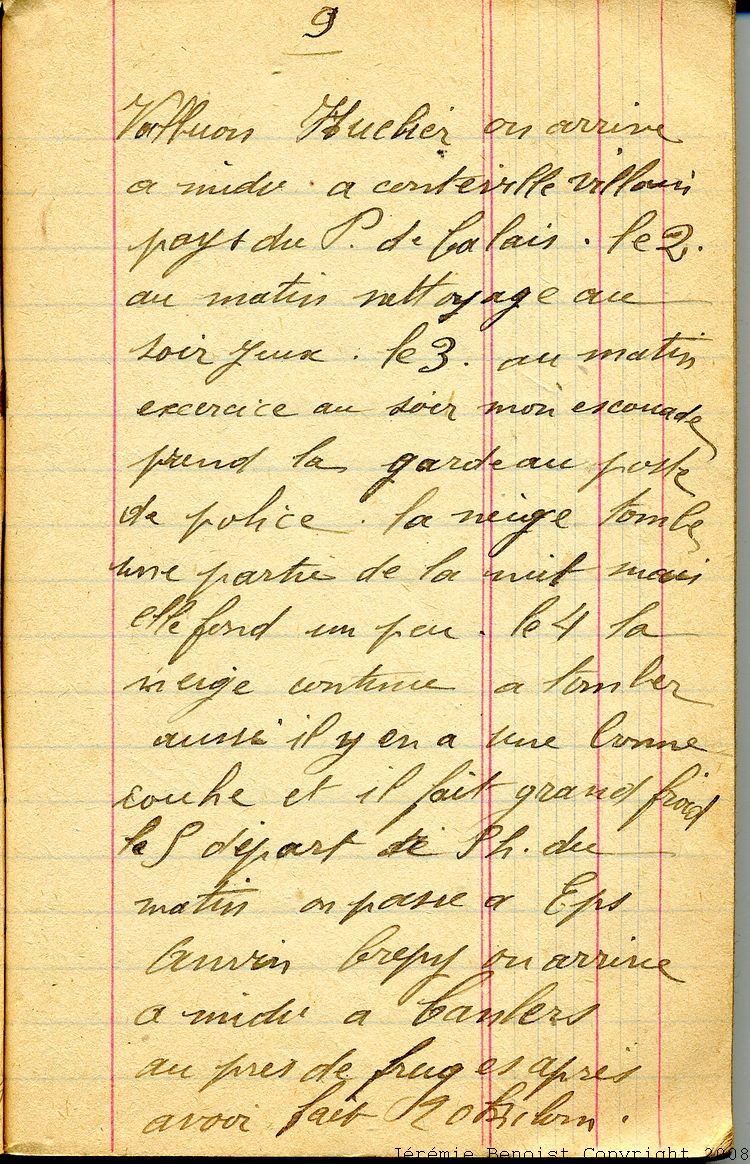 9
Valhuon Huchier on arrive
a midi a conteville villain
pays du P. de Calais. le 2.
au matin nettoyage au
soir jeux. le 3. au matin
exercice au soir mon escouade
prend la garde au poste
de police. la neige tombe
une partie de la nuit mais
elle fond un peu. le 4 la
neige continue a tomber
aussi il y en a une bonne
couhe et il fait grand froid
le 5 départ de h. du
matin on passe a Eps
Anvin Crepy on arrive
a midi a Canlers
au pres de fruges apres
avoir fait 20 kilom.
Jérémie Benoist Copyright 2008